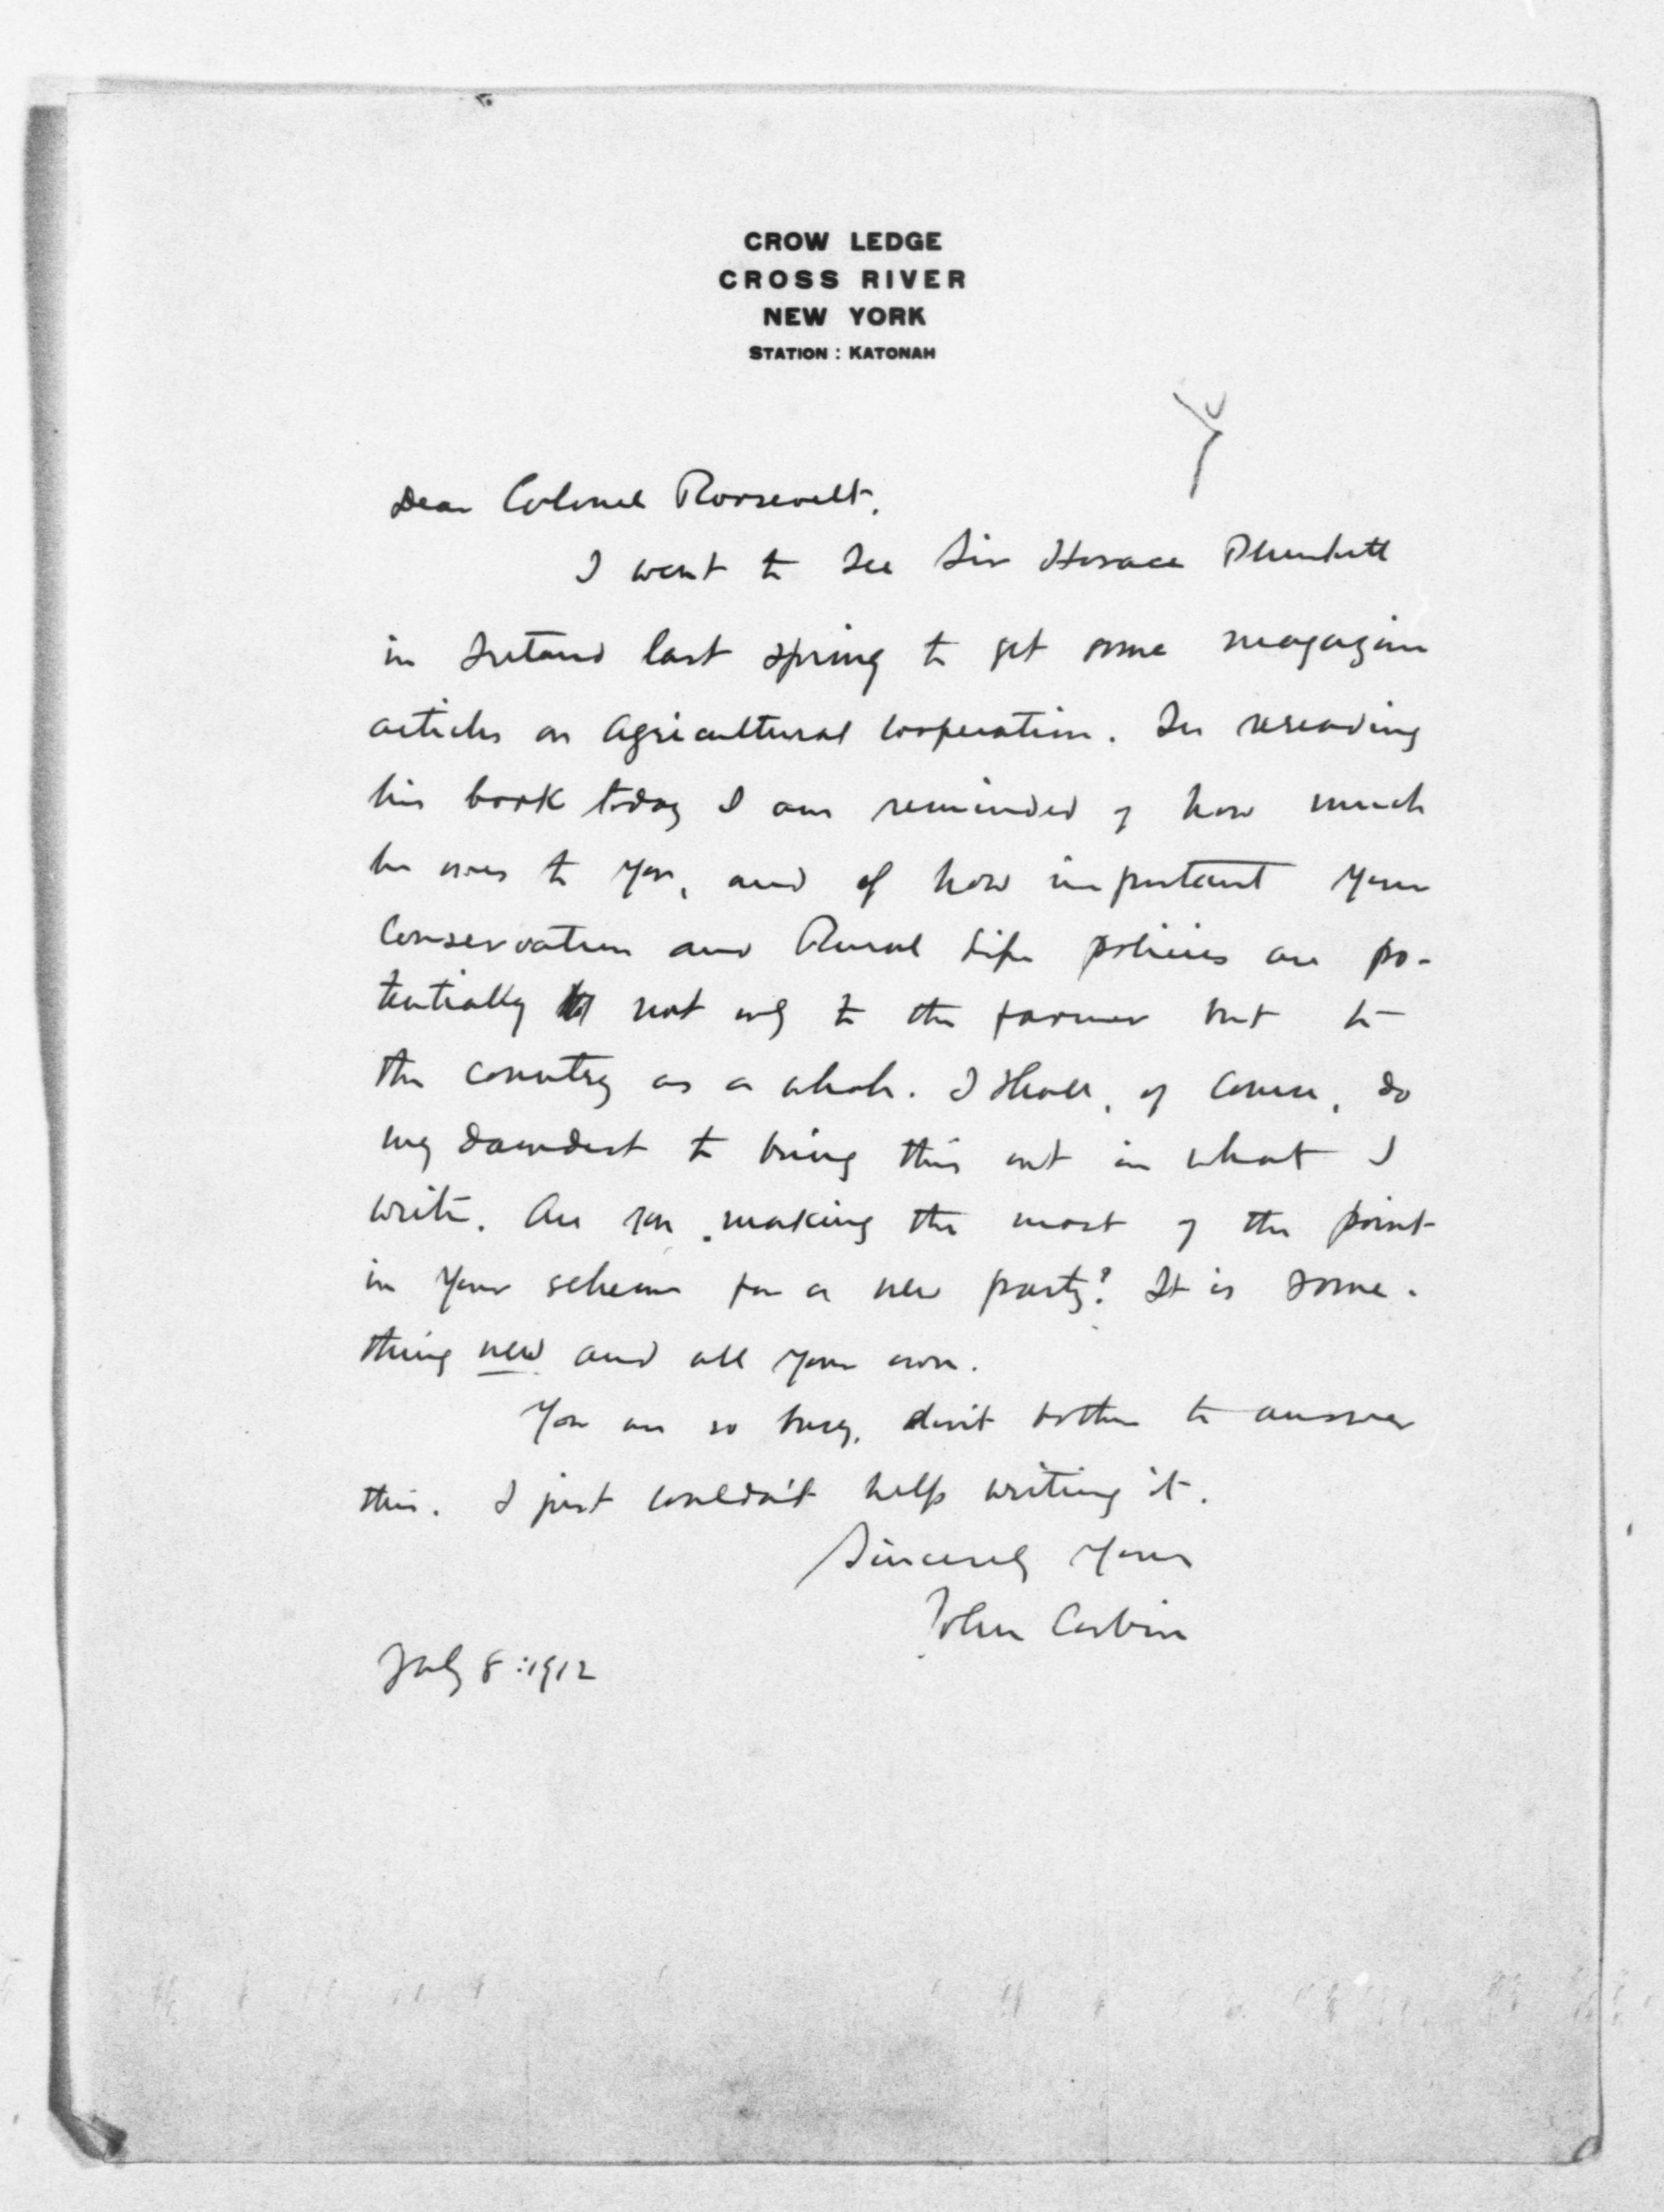 CROW LEDGE
CROSS RIVER
NEW YORK
STATION : KATONAH
Dear Colonel Roosevelt,
I went to see Sir Horace Plunkett
in Ireland last spring to get some magazine
articles on agricultural cooperation. In rereading
his book today I am reminded of how much
he owes to you, and of how important your
Conservation and Rural Life policies are po-
tentially not only to the farmer but to
the country as a whole. I shall, of course, do
my damdest to bring this out in what I
write. Are you making the most of the point
in your scheme for a new party? It is some-
thing new and all your own.
You are so busy, don't bother to answer
this. I just couldn't help writing it.
Sincerely yours
John Corbin
July 8:1912